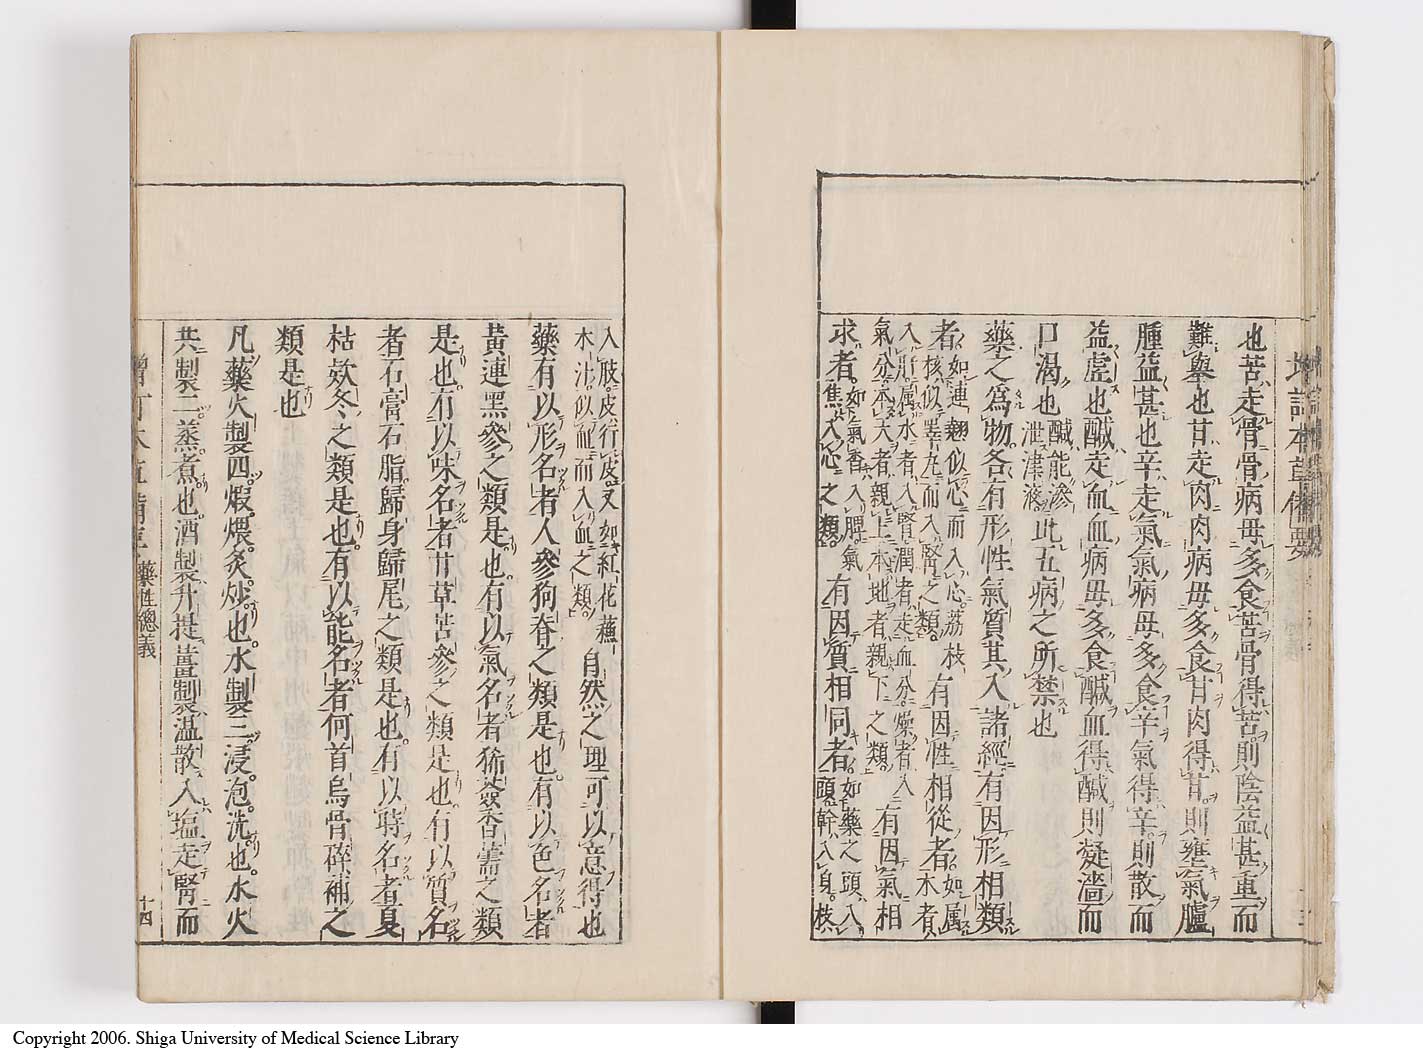 増訂本草備要
也苦走骨骨病毋多食苦骨得苦則陰益甚重而
難舉也甘走肉肉病毋多食甘肉得甘則壅氣臚
腫益甚也辛走氣氣病毋多食辛氣得辛則散而
益虛也鹹走血血病毋多食鹹血得鹹則凝濇而
口渴也鹹能滲泄津液此五病之所禁也
藥之爲物各有形性氣質其入諸經有因形相類
者如連翹似心而入心荔枝核似睪丸而入腎之類有因性相從者如屬木者
入肝屬水者入腎潤者走血分燥者入氣分本天者親上本地者親下之類有因氣相
求者如氣香入脾氣焦入心之類有因質相同者如藥之頭入頭幹入身枝
入肢皮行皮又如紅花蘇木汁似血而入血之類自然之理可以意得也
藥有以形名者人參狗脊之類是也有以色名者
黃連黑參之類是也有以氣名者豨薟香薷之類
是也有以味名者甘草苦參之類是也有以質名
者石膏石脂歸身歸尾之類是也有以時名者夏
枯欵冬之類是也有以能名者何首烏骨碎補之
類是也
凡藥火製四煆煨炙炒也水製三浸泡洗也水火
共製二蒸煮也酒製升提薑製溫散入塩走腎而
藥性總義
十四
Copyright 2006. Shiga University of Medical Science Library